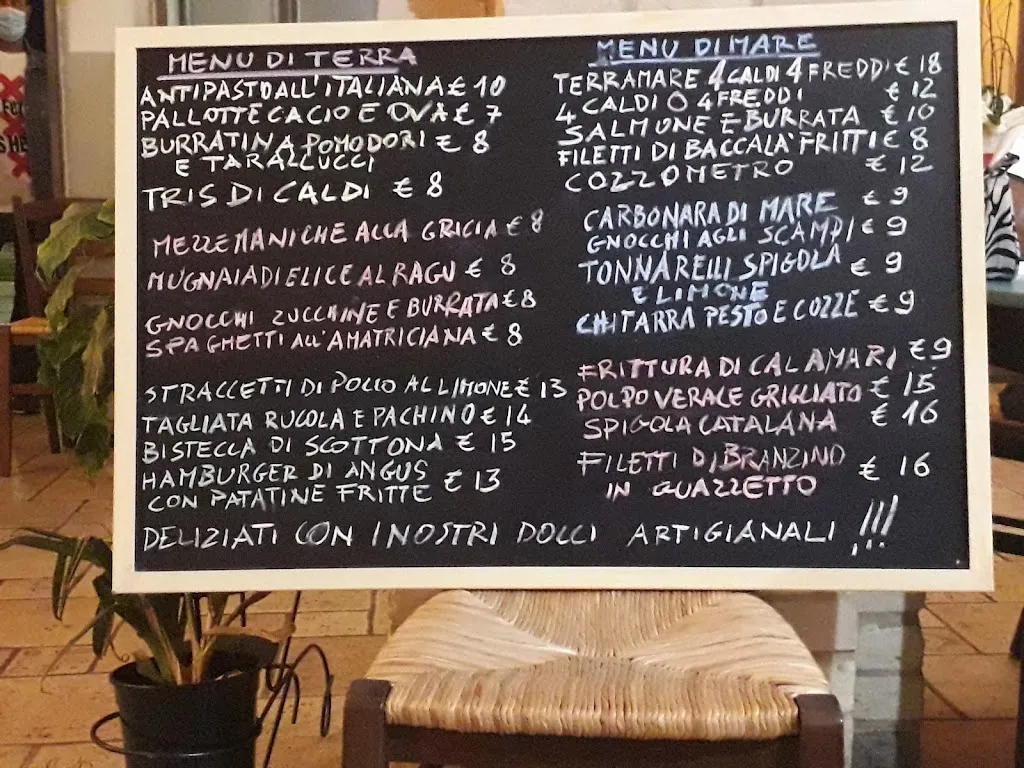 MENU DI TERRA
ANTIPASTO ALL'ITALIANA € 10
PALLOTTE CACIO E OVA € 7
BURRATINA POMODORI € 8
E TARALLUCCI
TRIS DI CALDI € 8
MEZZEMANICHE ALLA GRICIA € 8
MUGNAIA DI ELICE AL RAGU € 8
GNOCCHI ZUCCHINE E BURRATA € 8
SPAGHETTI ALL'AMATRICIANA € 8
STRACCETTI DI POLLO AL LIMONE € 13
TAGLIATA RUCOLA E PACHINO € 14
BISTECCA DI SCOTTONA € 15
HAMBURGER DI ANGUS
CON PATATINE FRITTE € 13
MENU DI MARE
TERRAMARE 4 CALDI 4 FREDDI € 18
4 CALDI O 4 FREDDI € 12
SALMONE E BURRATA € 10
FILETTI DI BACCALA' FRITTI € 8
COZZOMETRO € 12
CARBONARA DI MARE € 9
GNOCCHI AGLI SCAMPI € 9
TONNARELLI SPIGOLA € 9
E LIMONE
CHITARRA PESTO E COZZE € 9
FRITTURA DI CALAMARI € 9
POLPO VERACE GRIGLIATO € 15
SPIGOLA CATALANA € 16
FILETTI DI BRANZINO € 16
IN GUAZZETTO
DELIZIATI CON I NOSTRI DOLCI ARTIGIANALI !!!